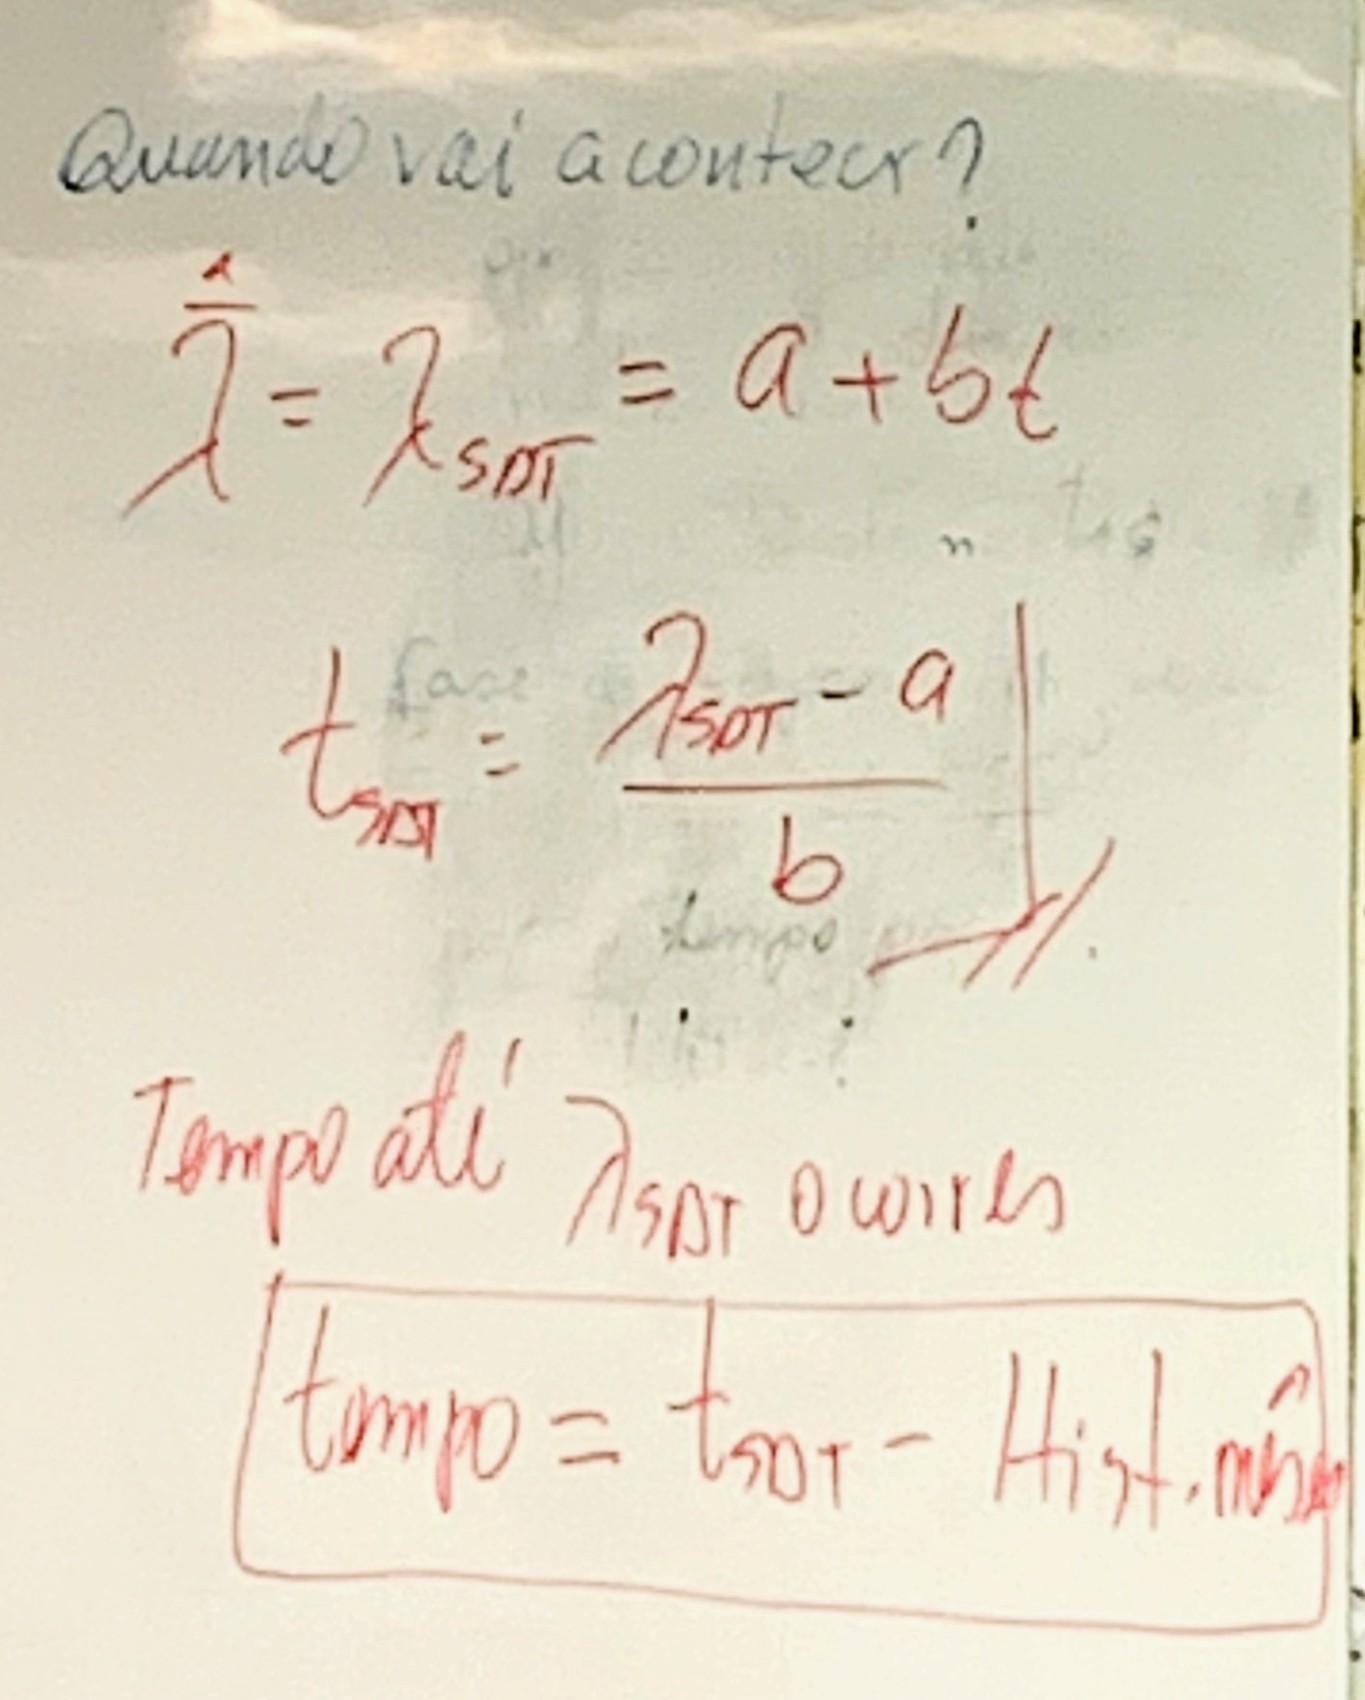 Quando vai acontecer?
λ̂ = λ_SDT = a + bt
t_SDT = (λ_SDT - a) / b
tempo
Tempo até λ_SDT ocorrer
tempo = t_SDT - Hist.